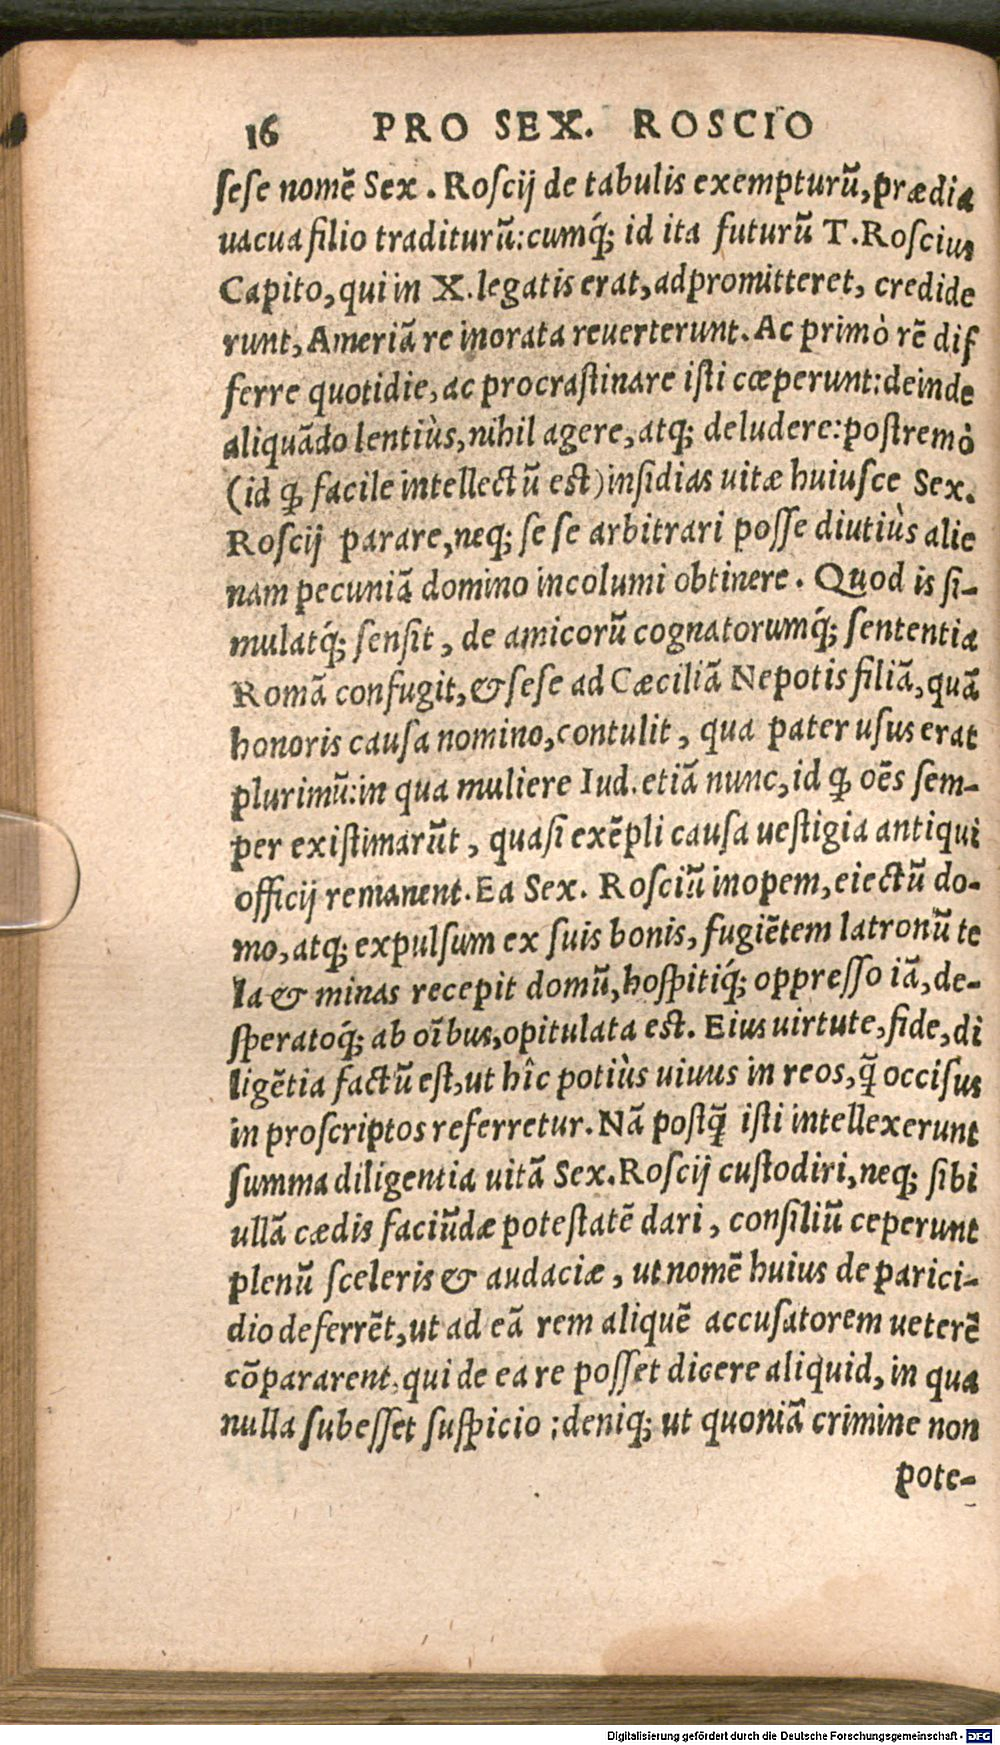 16 PRO SEX. ROSCIO
ſeſe nomē Sex. Roſcij de tabulis exempturū, prædia
uacua filio traditurū: cumq́; id ita futurū T. Roſcius
Capito, qui in X. legatis erat, adpromitteret, credide
runt, Ameriā re inorata reuerterunt. Ac primò rē dif
ferre quotidie, ac procraſtinare iſti cœperunt: deinde
aliquādo lentiùs, nihil agere, atq; deludere: poſtremò
(id ꝙ facile intellectū est) inſidias uitæ huiuſce Sex.
Roſcij parare, neq; ſe ſe arbitrari poſſe diutiùs alie
nam pecuniā domino incolumi obtinere. Quod is ſi-
mulatq́; ſenſit, de amicorū cognatorumq́; ſententia
Romā confugit, & ſeſe ad Cæciliā Nepotis filiā, quā
honoris cauſa nomino, contulit, qua pater uſus erat
plurimū: in qua muliere Iud. etiā nunc, id ꝙ oēs ſem-
per exiſtimarūt, quaſi exēpli cauſa ueſtigia antiqui
officij remanent. Ea Sex. Roſciū inopem, eiectū do-
mo, atq; expulſum ex ſuis bonis, fugiētem latronū te
la & minas recepit domū, hoſpitiq́; oppreſſo iā, de-
ſperatoq́; ab oībus, opitulata est. Eius uirtute, fide, di
ligētia factū eſt, ut hîc potiùs uiuus in reos, q̃ occiſus
in proſcriptos referretur. Nā poſtq̃ iſti intellexerunt
ſumma diligentia uitā Sex. Roſcij cuſtodiri, neq; ſibi
ullā cædis faciūdæ poteſtatē dari, conſiliū ceperunt
plenū ſceleris & audaciæ, ut nomē huius de parici-
dio deferrēt, ut ad eā rem aliquē accuſatorem ueterē
cōpararent, qui de ea re poſſet dicere aliquid, in qua
nulla ſubeſſet ſuſpicio; deniq; ut quoniā crimine non
pote-
Digitalisierung gefördert durch die Deutsche Forschungsgemeinschaft - DFG